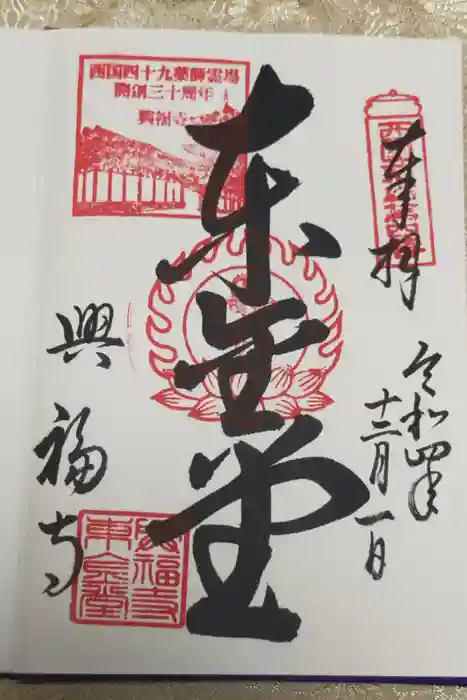 奉拝
令和四年
十二月一日
東金堂
興福寺
西国四十九薬師霊場
開創三十周年
興福寺
興福寺
東金堂